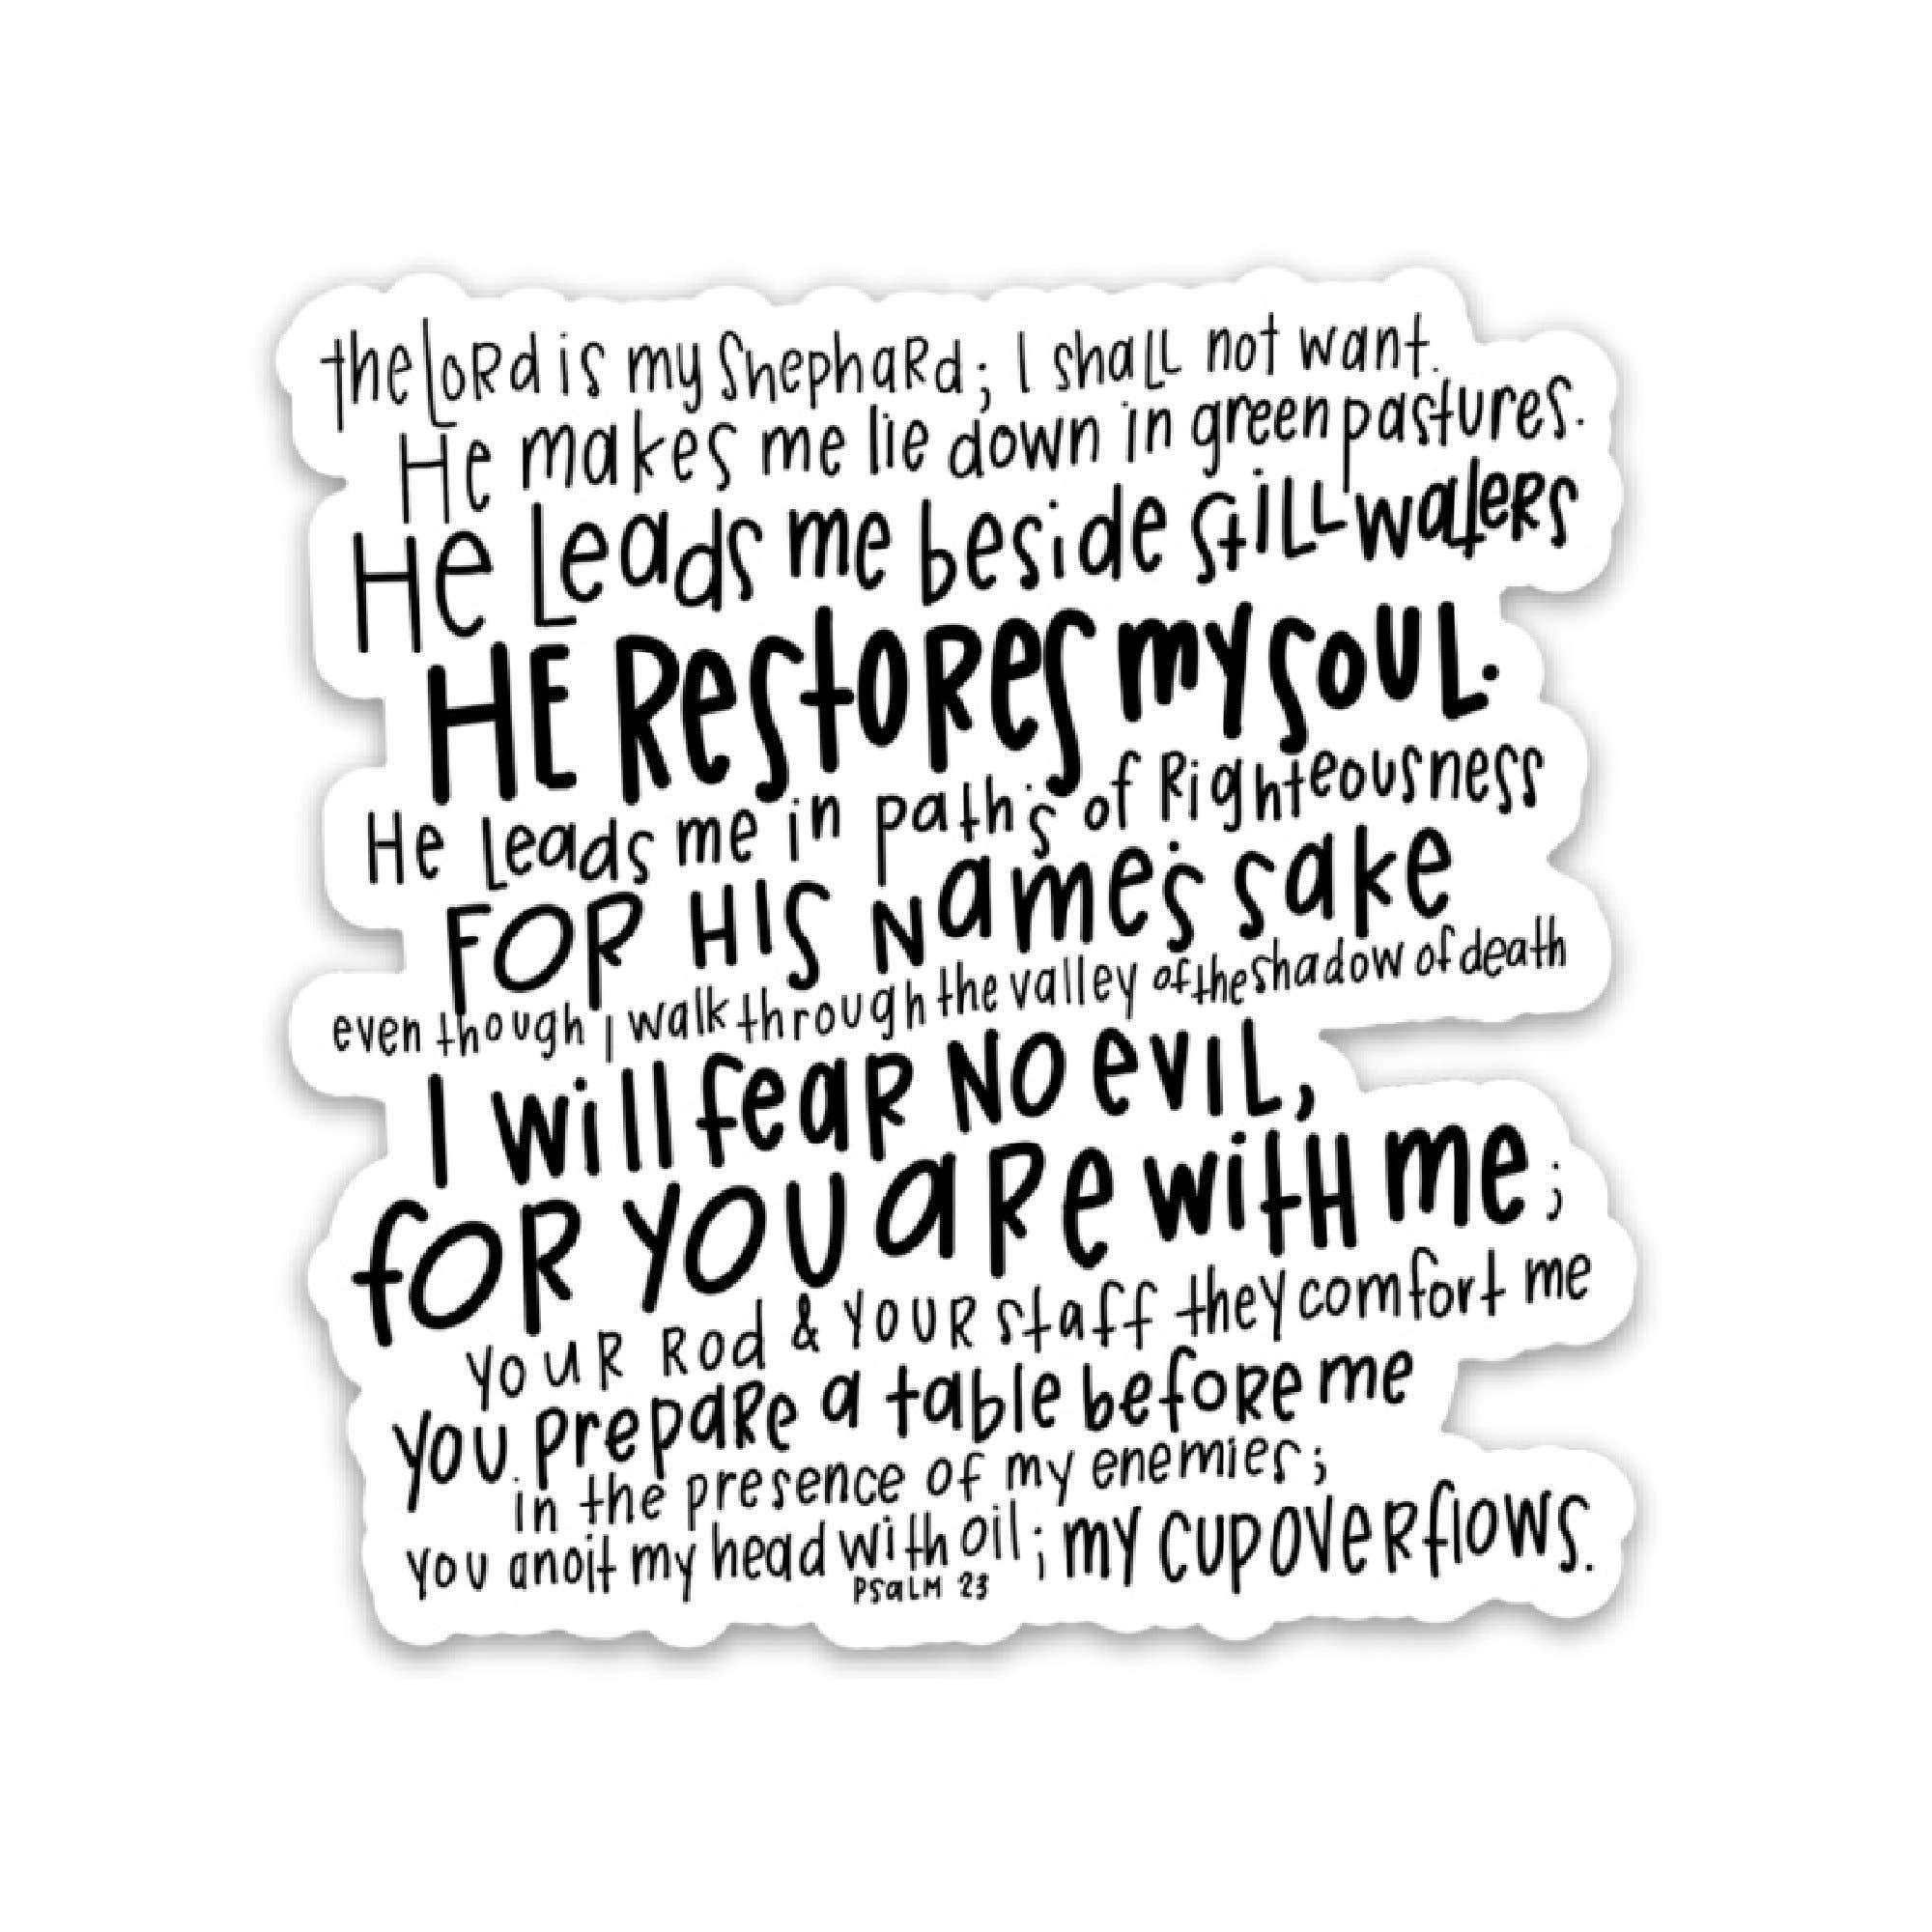 the LORd is my ShephaRd; I shaLL not want.
He makes me lie down in green pastures.
He Leads me beside stiLL wateRs
HE RestoRes my souL.
He Leads me in path's of Righteousness
FOR HIS Name's sake
even though I walk through the valley of the shadow of death
I will feaR NO eviL,
fOR YOU aRe witH me;
YouR Rod & YOUR staff they comfort me
You prepaRe a table befoRe me
in the presence of my enemies;
You anoit my head with oil; my cup oveRflows.
PSaLM 23